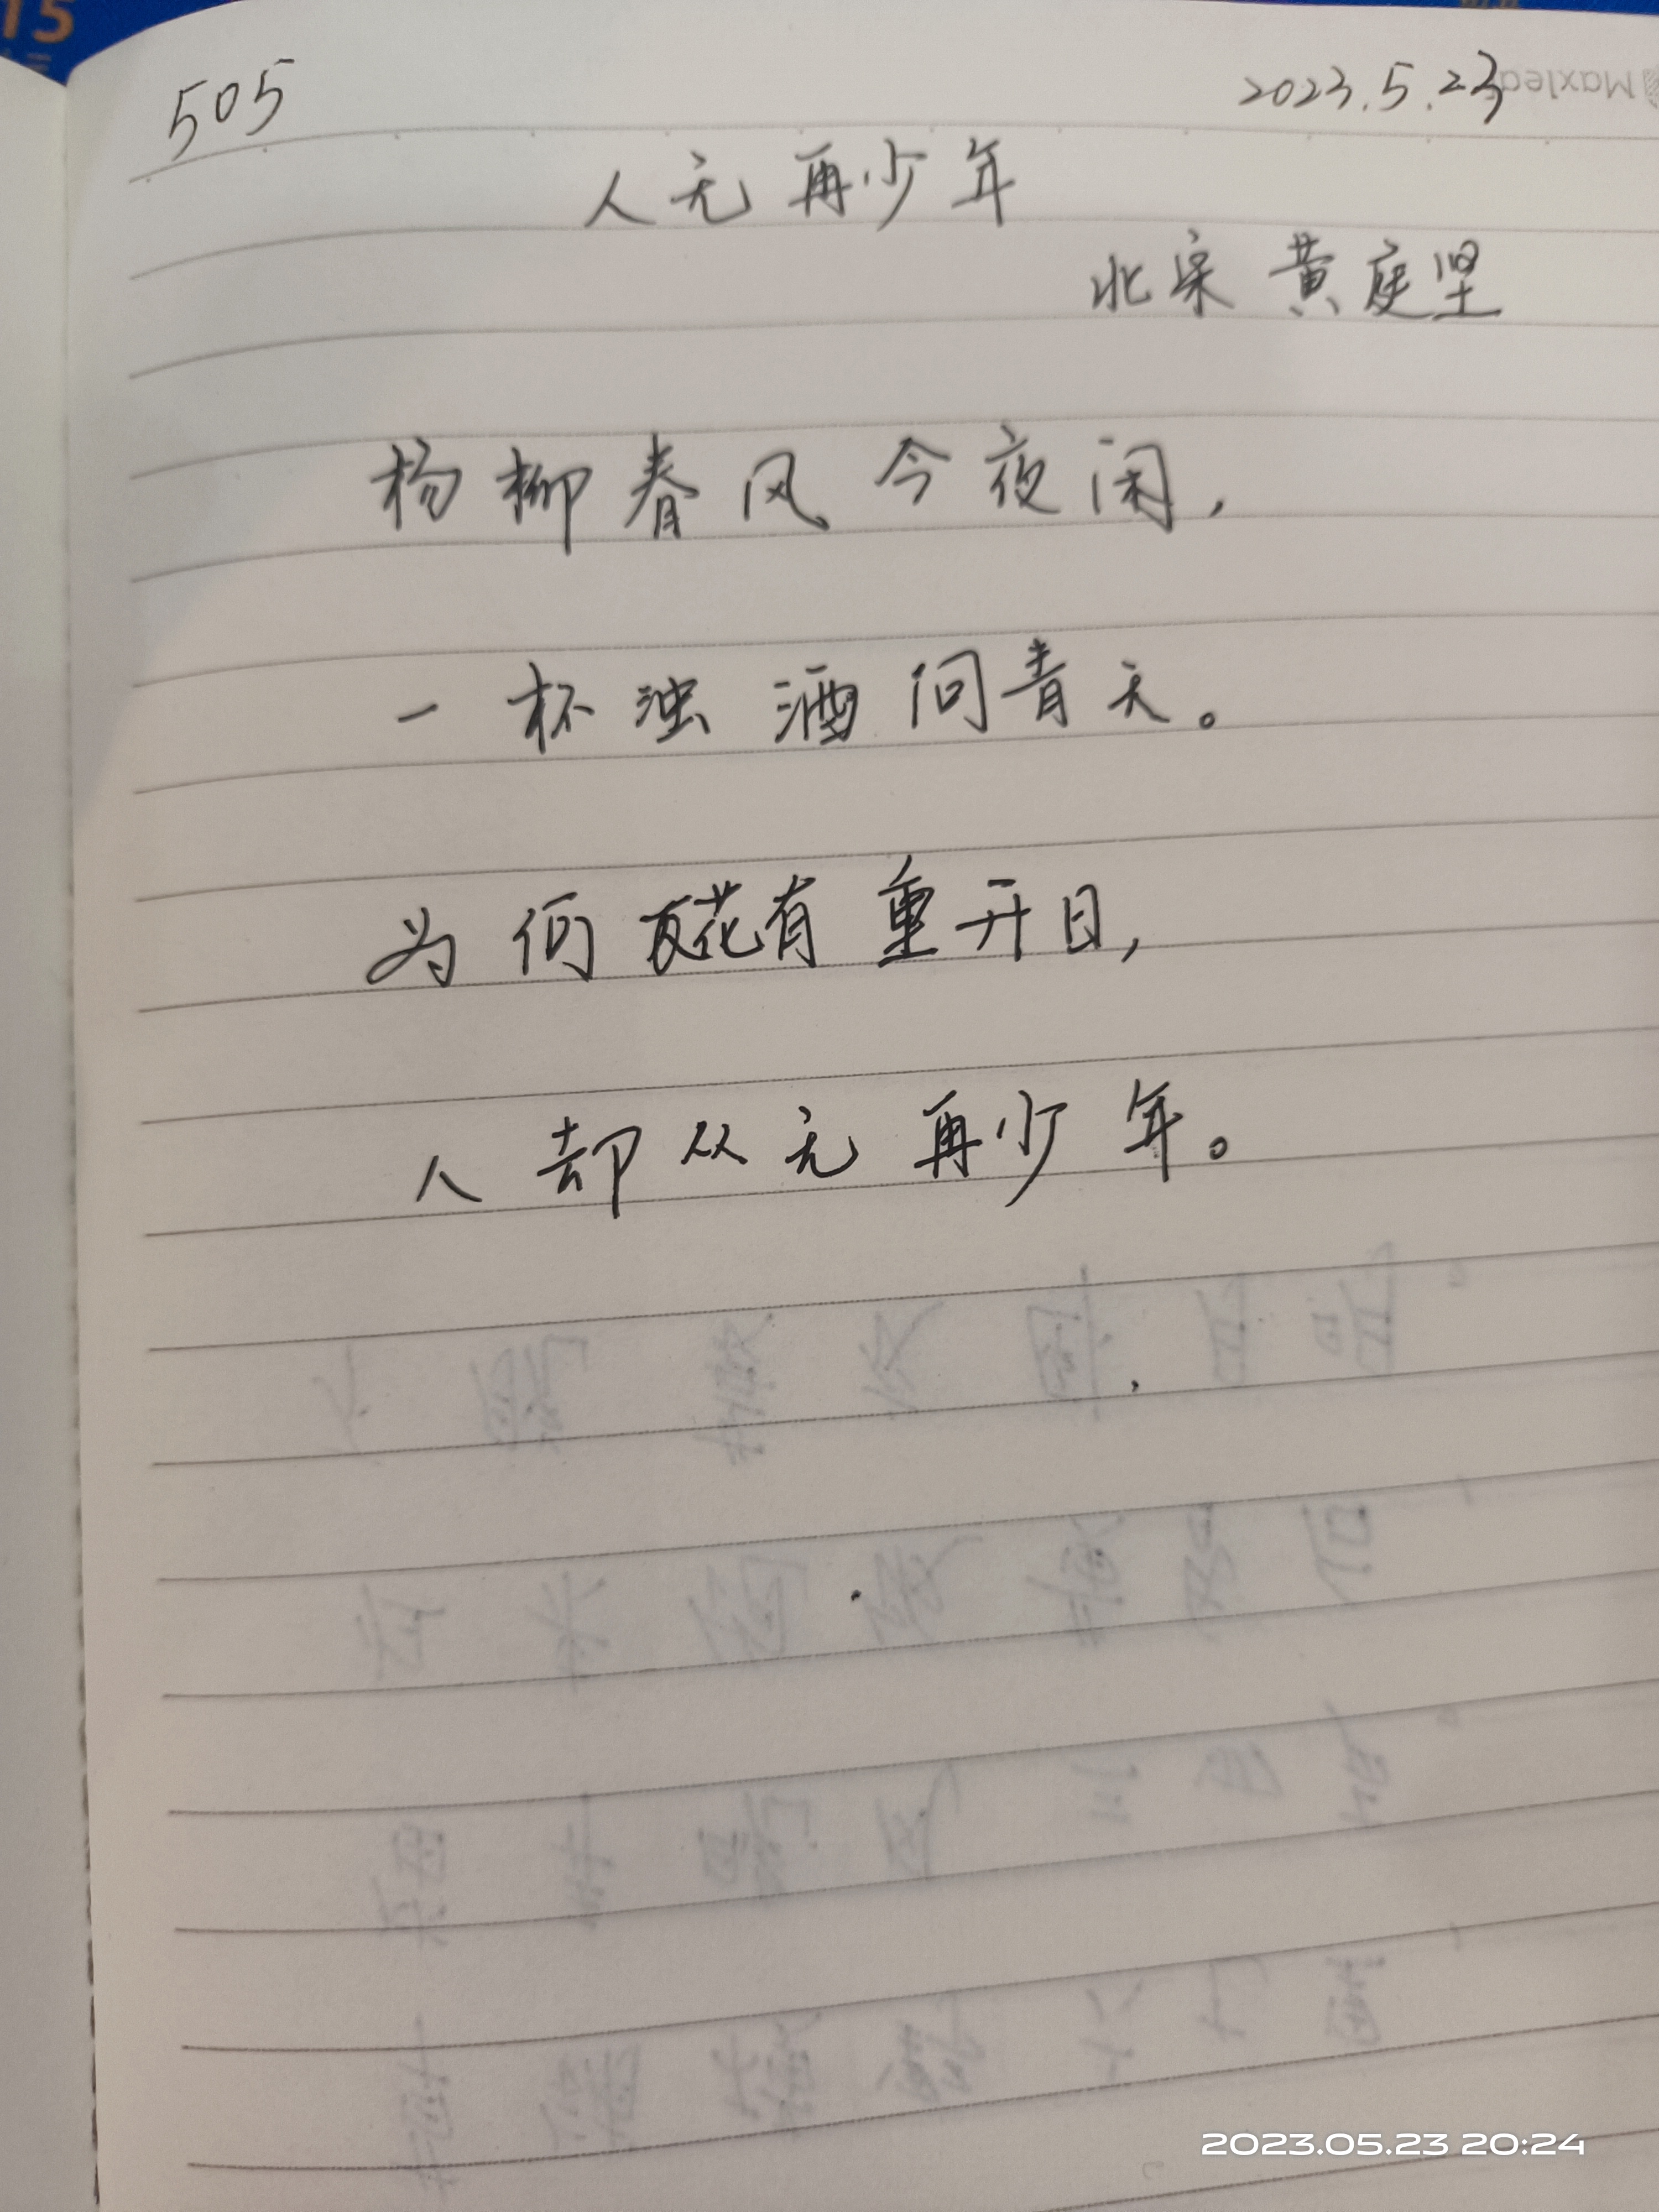 15
505
2023.5.23
Maxleaf
人无再少年
北宋 黄庭坚
杨柳春风今夜闲,
一杯浊酒问青天。
为何花有重开日,
人却从无再少年。
2023.05.23 20:24